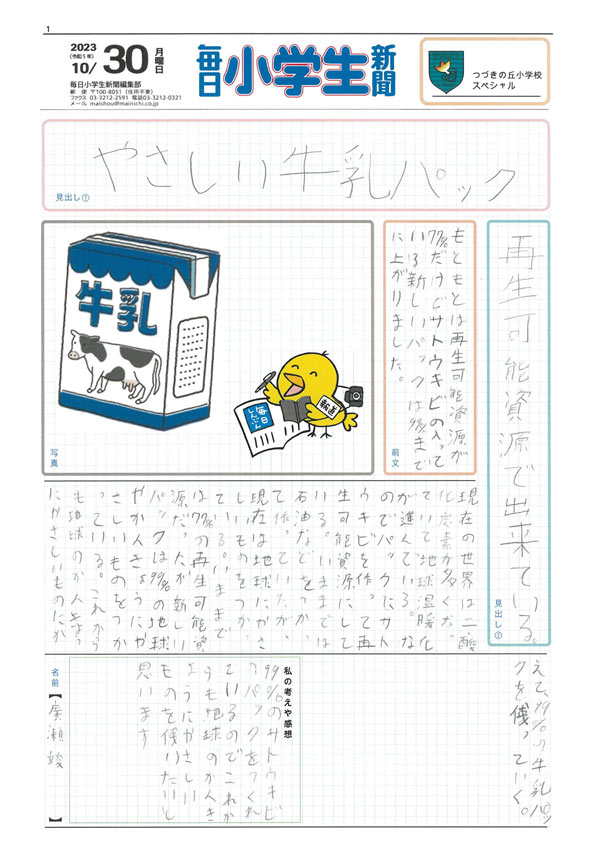 1
2023
(令和5年)
10/30 月曜日
毎日小学生新聞編集部
郵 便 〒100-8051（住所不要）
ファクス 03-3212-2591 電話03-3212-0321
メール maishou@mainichi.co.jp
毎日小学生新聞
つづきの丘小学校
スペシャル
やさしい牛乳パック
見出し①
再生可能資源で出来ている。
見出し②
もともとは再生可能資源が
77%だけどサトウキビの入って
いる新しいパックは99%まで
に上がりました。
前文
牛乳
毎日
しんぶん
報道
写真
現在の世界は二酸
化炭素が多くなっ
ていて地球温暖化
が進んでいる。な
のでパックにサト
ウキビを作って再
生可能資源にして
いる。いままでは
石油などをつかっ
て作っていたが、
現在は地球にやさ
しいものをつかっ
ている。いままで
は77%の再生可能資
源だったが新しい
パックは99%の地球
やかんきょうにや
さしいものをつか
っている。これから
も地球のかんきょう
にやさしいものにか
えて、99%の牛乳パッ
クを使っていく。
私の考えや感想
99%のサトウキビ
パックをつくれ
ているのでこれか
らも地球のかんき
ょうにやさしい
ものを使いたいと
思います
名前【廣瀬 竣】